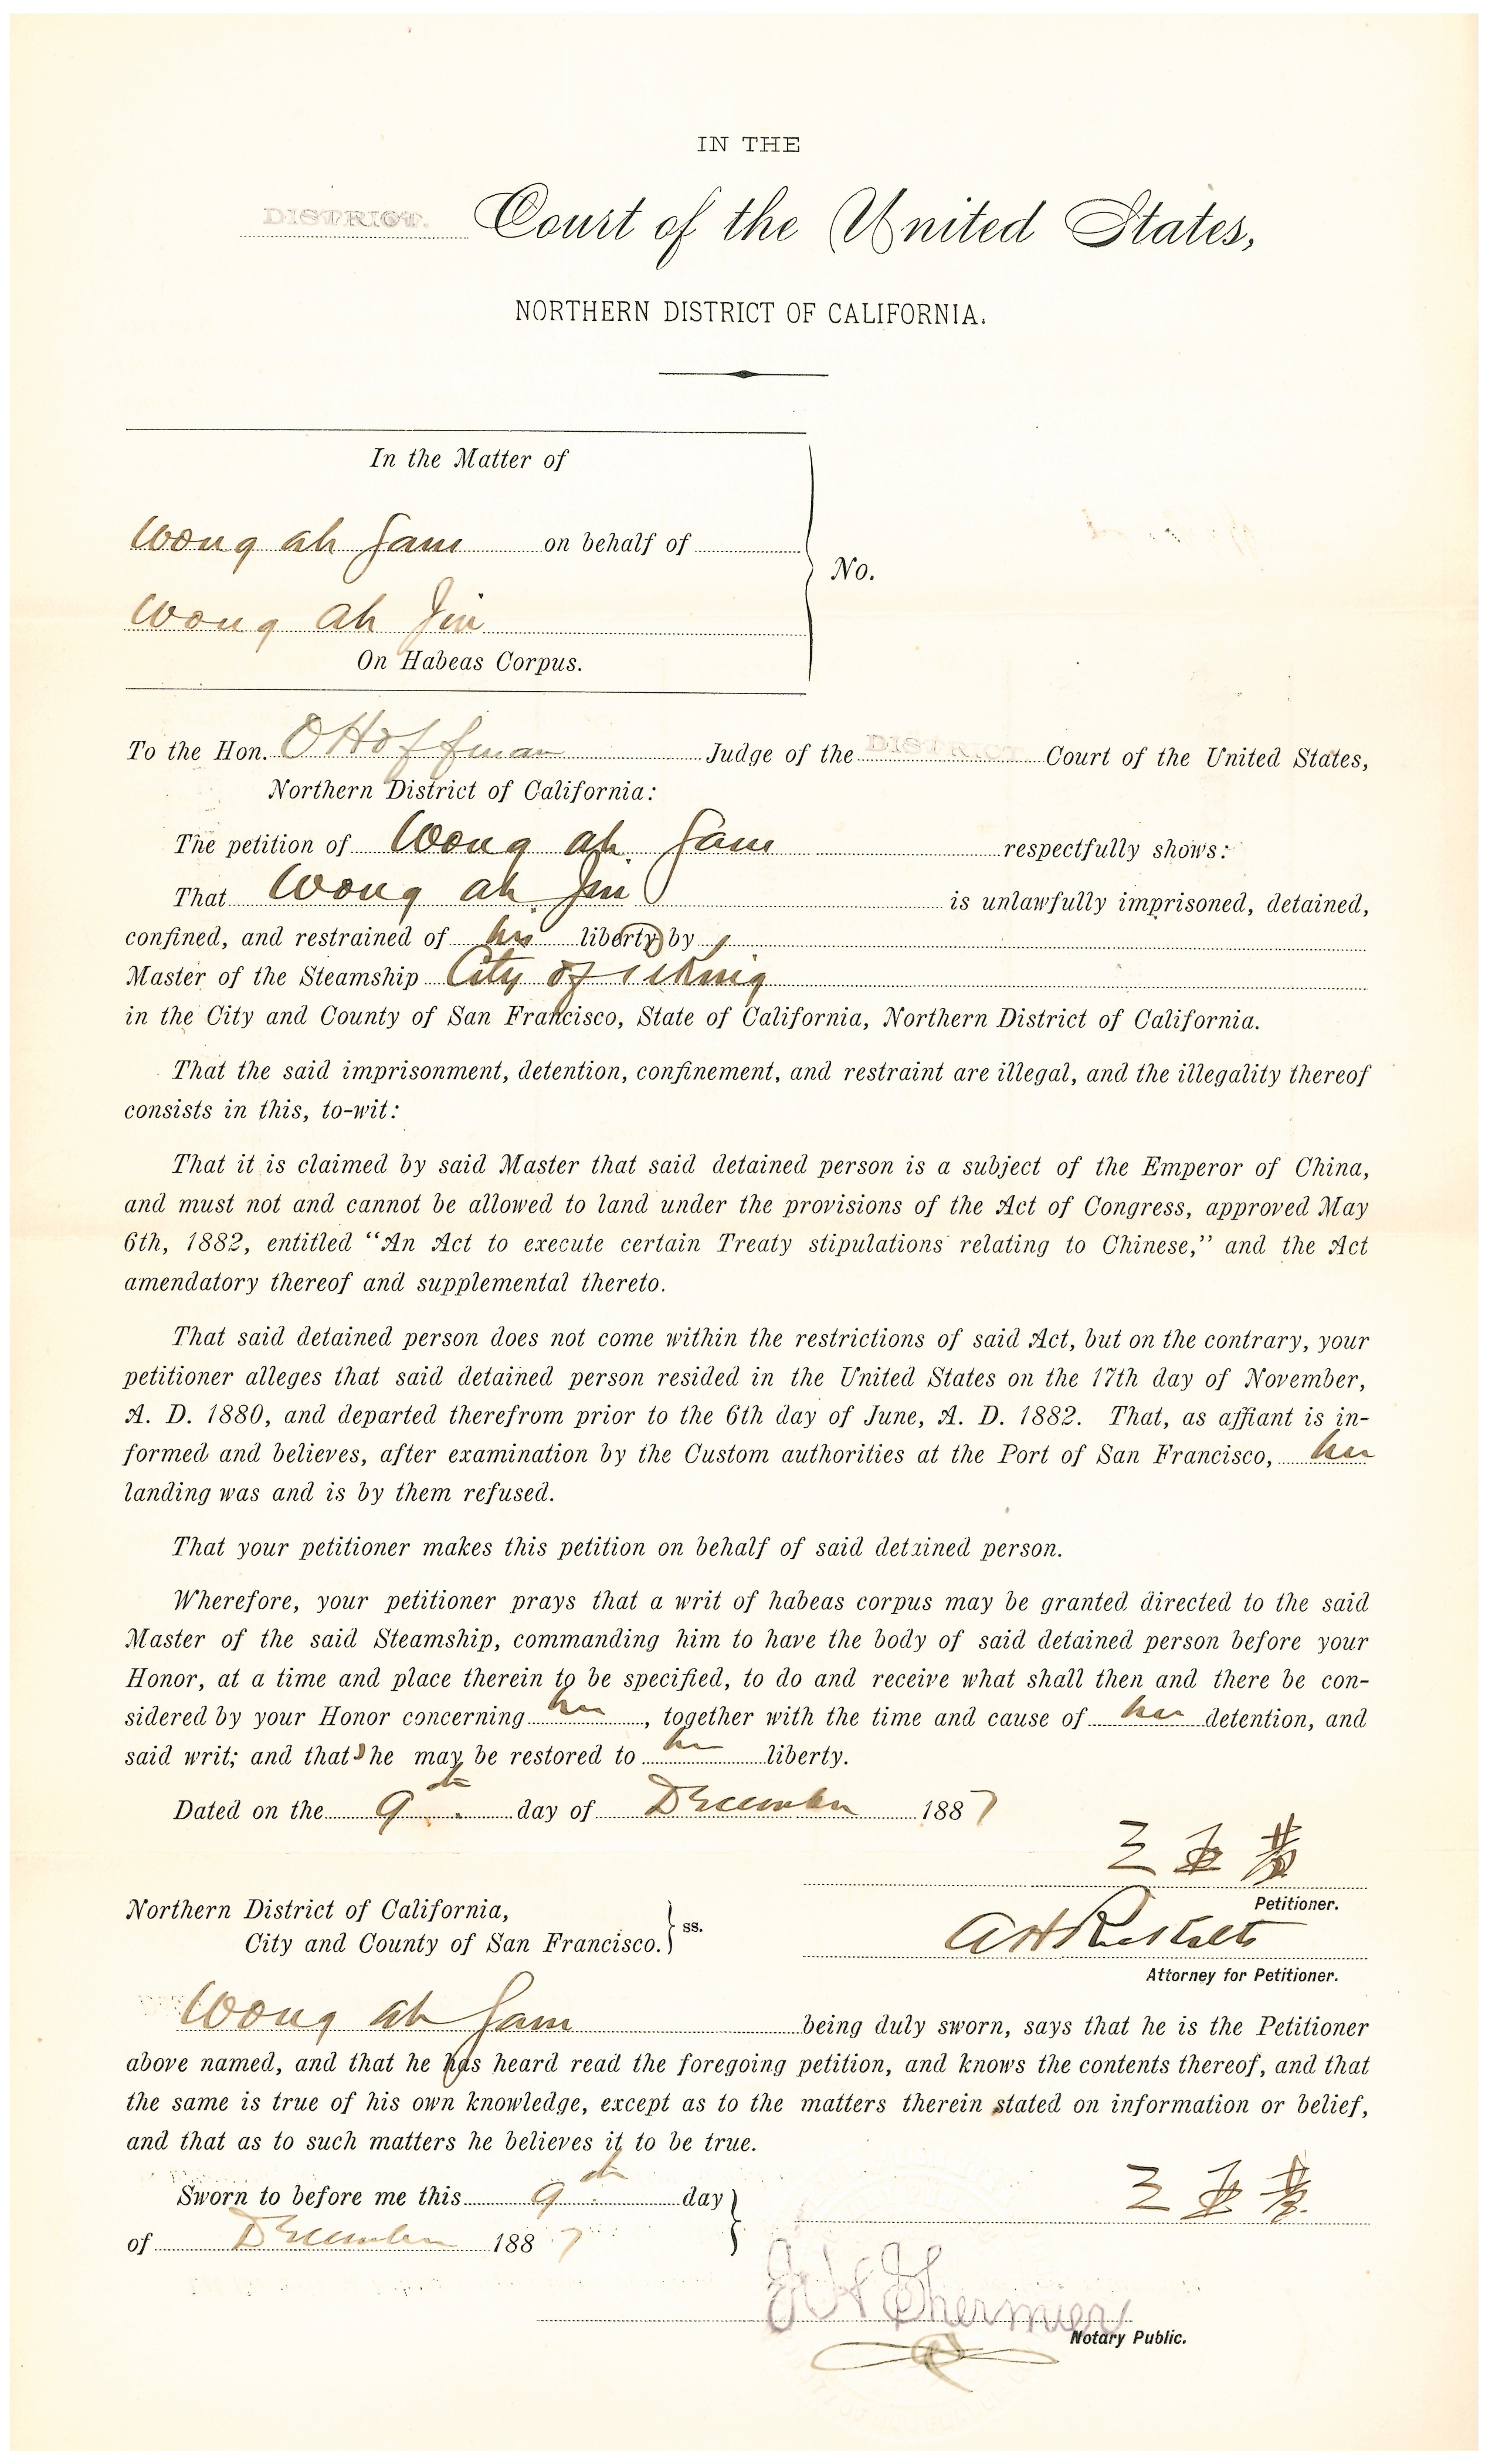 IN THE
DISTRICT. Court of the United States,
NORTHERN DISTRICT OF CALIFORNIA.
In the Matter of
Wong ah Sam on behalf of
Wong Ah Jin
No.
On Habeas Corpus.
To the Hon. O Hoffman Judge of the DISTRICT Court of the United States,
Northern District of California:
The petition of Wong ah Sam respectfully shows:
That Wong ah Jin is unlawfully imprisoned, detained,
confined, and restrained of liberty by
Master of the Steamship City of Peking
in the City and County of San Francisco, State of California, Northern District of California.
That the said imprisonment, detention, confinement, and restraint are illegal, and the illegality thereof
consists in this, to-wit:
That it is claimed by said Master that said detained person is a subject of the Emperor of China,
and must not and cannot be allowed to land under the provisions of the Act of Congress, approved May
6th, 1882, entitled “An Act to execute certain Treaty stipulations relating to Chinese,” and the Act
amendatory thereof and supplemental thereto.
That said detained person does not come within the restrictions of said Act, but on the contrary, your
petitioner alleges that said detained person resided in the United States on the 17th day of November,
A. D. 1880, and departed therefrom prior to the 6th day of June, A. D. 1882. That, as affiant is in-
formed and believes, after examination by the Custom authorities at the Port of San Francisco, her
landing was and is by them refused.
That your petitioner makes this petition on behalf of said detained person.
Wherefore, your petitioner prays that a writ of habeas corpus may be granted directed to the said
Master of the said Steamship, commanding him to have the body of said detained person before your
Honor, at a time and place therein to be specified, to do and receive what shall then and there be con-
sidered by your Honor concerning her, together with the time and cause of her detention, and
said writ; and that she may be restored to her liberty.
Dated on the 9th day of December 1887
三亚黄
Petitioner.
Northern District of California,
City and County of San Francisco. } ss.
Attorney for Petitioner.
Wong ah Sam being duly sworn, says that he is the Petitioner
above named, and that he has heard read the foregoing petition, and knows the contents thereof, and that
the same is true of his own knowledge, except as to the matters therein stated on information or belief,
and that as to such matters he believes it to be true.
Sworn to before me this 9th day
of December 1887
三亚黄
Notary Public.